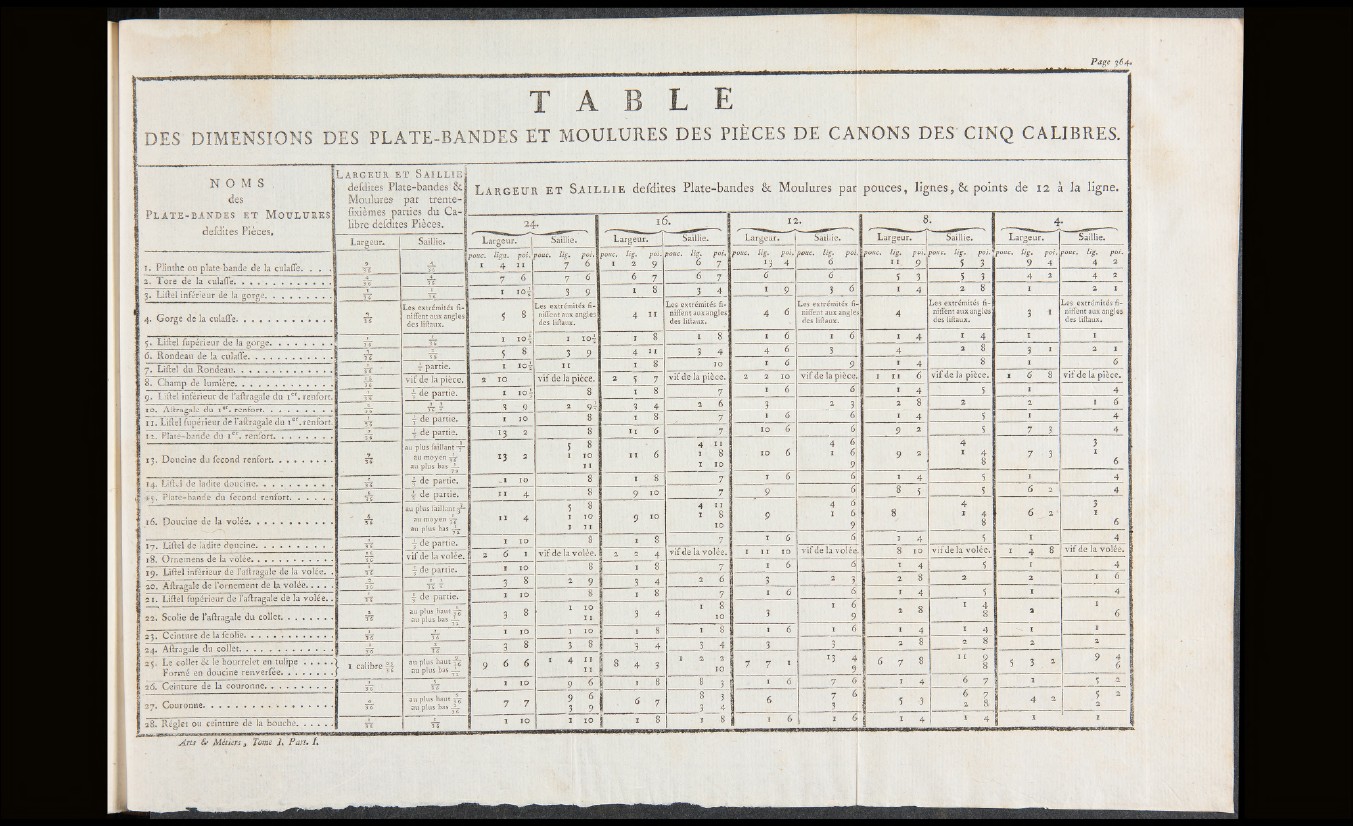 Page 264.
T A B L E
DES DIMENSIONS DES PLATE-BANDES ET MOULURES DES PIÈCES DE CANONS DES CINQ CALIBRES.
NOMS
des
PLATE-BANDES ET MOULURES
desdites Pièces,
LARGEUR ET SAILLIE
desdites Plate-bandes &
Moulures par trente-
sixièmes parties du Ca-
libre desdites Pièces.
LARGEUR ET SAILLIE desdites Plate-bandes & Moulures par pouces, lignes, & points de 12 à la ligne.
24. 16. 12. 8. 4.
Largeur. Saillie. Largeur. Saillie. Largeur. Saillie. Largeur. Saillie. Largeur. Saillie. Largeur. Saillie.
pouc. lign. poi. pouc. lig. poi. pouc. lig. poi. pouc. lig. poi. pouc. lig. poi. pouc. lig. poi. pouc. lig. poi. pouc. lig. poi. pouc. lig. poi. pouc. lig. poi.
1. Plinthe ou plate-bande de la culasse. 1 4 11 7 6 1 2 9 6 7 13 4 6 11 9 5 3 9 4 4 2
2. Tore de la culasse. 7 6 7 6 6 7 6 7 6 6 5 3 5 3 4 2 4 2
3. Listel inférieur de la gorge. 1 10½ 3 9 1 8 3 4 1 9 3 6 1 4 2 8 1 2 1
4. Gorge de la culasse. Les extrémités finissent aux angles des listaux. 5 8 Les extrémités finissent aux angles des listaux. 4 11 Les extrémités finissent aux angles des listaux. 4 6 Les extrémités finissent aux angles des listaux. 4 Les extrémités finissent aux angles des listaux. 3 1 Les extrémités finissent aux angles des listaux.
5. Listel supérieur de la gorge. 1 10½ 1 10½ 1 8 1 8 1 6 1 6 1 4 1 4 1 1
6. Rondeau de la culasse. 5 8 3 9 4 11 3 4 4 6 3 4 2 8 3 1 2 1
7. Listel du Rondeau. partie. 1 10½ 11 1 8 10 1 6 9 1 4 8 1 6
8. Champ de lumière. vif de la pièce. 2 10 vif de la pièce. 2 5 7 vif de la pièce. 2 2 10 vif de la pièce. 1 11 6 vif de la pièce. 1 6 8 vif de la pièce.
9. Listel inférieur de l'astragale du 1er. renfort. de partie. 1 10½ 8 1 8 7 1 6 6 1 4 5 1 4
10. Astragale du 1er. renfort. 3 9 2 9½ 3 4 2 6 3 2 3 2 8 2 2 1 6
11. Listel supérieur de l'astragale du 1er. renfort. de partie. 1 10 8 1 8 7 1 6 6 1 4 5 1 4
12. Plate-bande du 1er. renfort. de partie. 13 2 8 11 6 7 10 6 6 9 2 5 7 3 4
13. Doucine du second renfort. au plus saillant 5 8 4 11 4 6 4 3
au moyen 13 2 1 10 11 6 1 8 10 6 1 6 9 2 1 4 7 3 1
au plus bas 11 1 10 9 8 6
14. Listel de ladite doucine. de partie. 1 10 8 1 8 7 1 6 6 1 4 5 1 4
15. Plate-bande du second renfort. de partie. 11 4 8 9 10 7 9 6 8 5 5 6 2 4
16. Doucine de la volée. au plus saillant 5 8 4 11 4 6 4 3
au moyen 11 4 1 10 9 10 1 8 9 1 6 8 1 4 6 2 1
au plus bas 1 11 10 9 8 6
17. Listel de ladite doucine. de partie. 1 10 8 1 8 7 1 6 6 1 4 5 1 4
18. Ornemens de la volée. vif de la volée. 2 6 1 vif de la volée. 2 2 4 vif de la volée. 1 11 10 vif de la volée. 8 10 vif de la volée. 1 4 8 vif de la volée.
19. Listel inférieur de l'astragale de la volée. de partie. 1 10 8 1 8 7 1 6 6 1 4 5 1 4
20. Astragale de l'ornement de la volée. 3 8 2 9 3 4 2 6 3 2 3 2 8 2 2 1 6
21. Listel supérieur de l'astragale de la volée. de partie. 1 10 8 1 8 7 1 6 6 1 4 5 1 4
22. Scolie de l'astragale du collet. au plus haut 3 8 1 10 3 4 1 8 3 1 6 2 8 1 4 2 1
au plus bas 11 10 9 8 6
23. Ceinture de la scolie. 1 10 1 10 1 8 1 8 1 6 1 6 1 4 1 4 1 1
24. Astragale du collet. 3 8 3 8 3 4 3 4 3 3 2 8 2 8 2 2
25. Le collet & le bourrelet en tulipe 1 calibre au plus haut 9 6 6 1 4 11 8 4 3 1 2 2 7 7 1 13 4 6 7 8 11 9 5 3 2 9 4
Formé en doucine renversée. au plus bas 11 10 9 8 6
26. Ceinture de la couronne. 1 10 9 6 1 8 8 3 1 6 7 6 1 4 6 7 1 5 2
27. Couronne. au plus haut 7 7 9 6 6 7 8 3 6 7 6 5 3 6 7 4 2 5 2
au plus bas 3 9 3 4 3 2 8 2
28. Régles ou ceinture de la bouche. 1 10 1 10 1 8 1 8 1 6 1 6 1 4 1 4 1 1
Arts & Métiers, Tome I, Part. I.